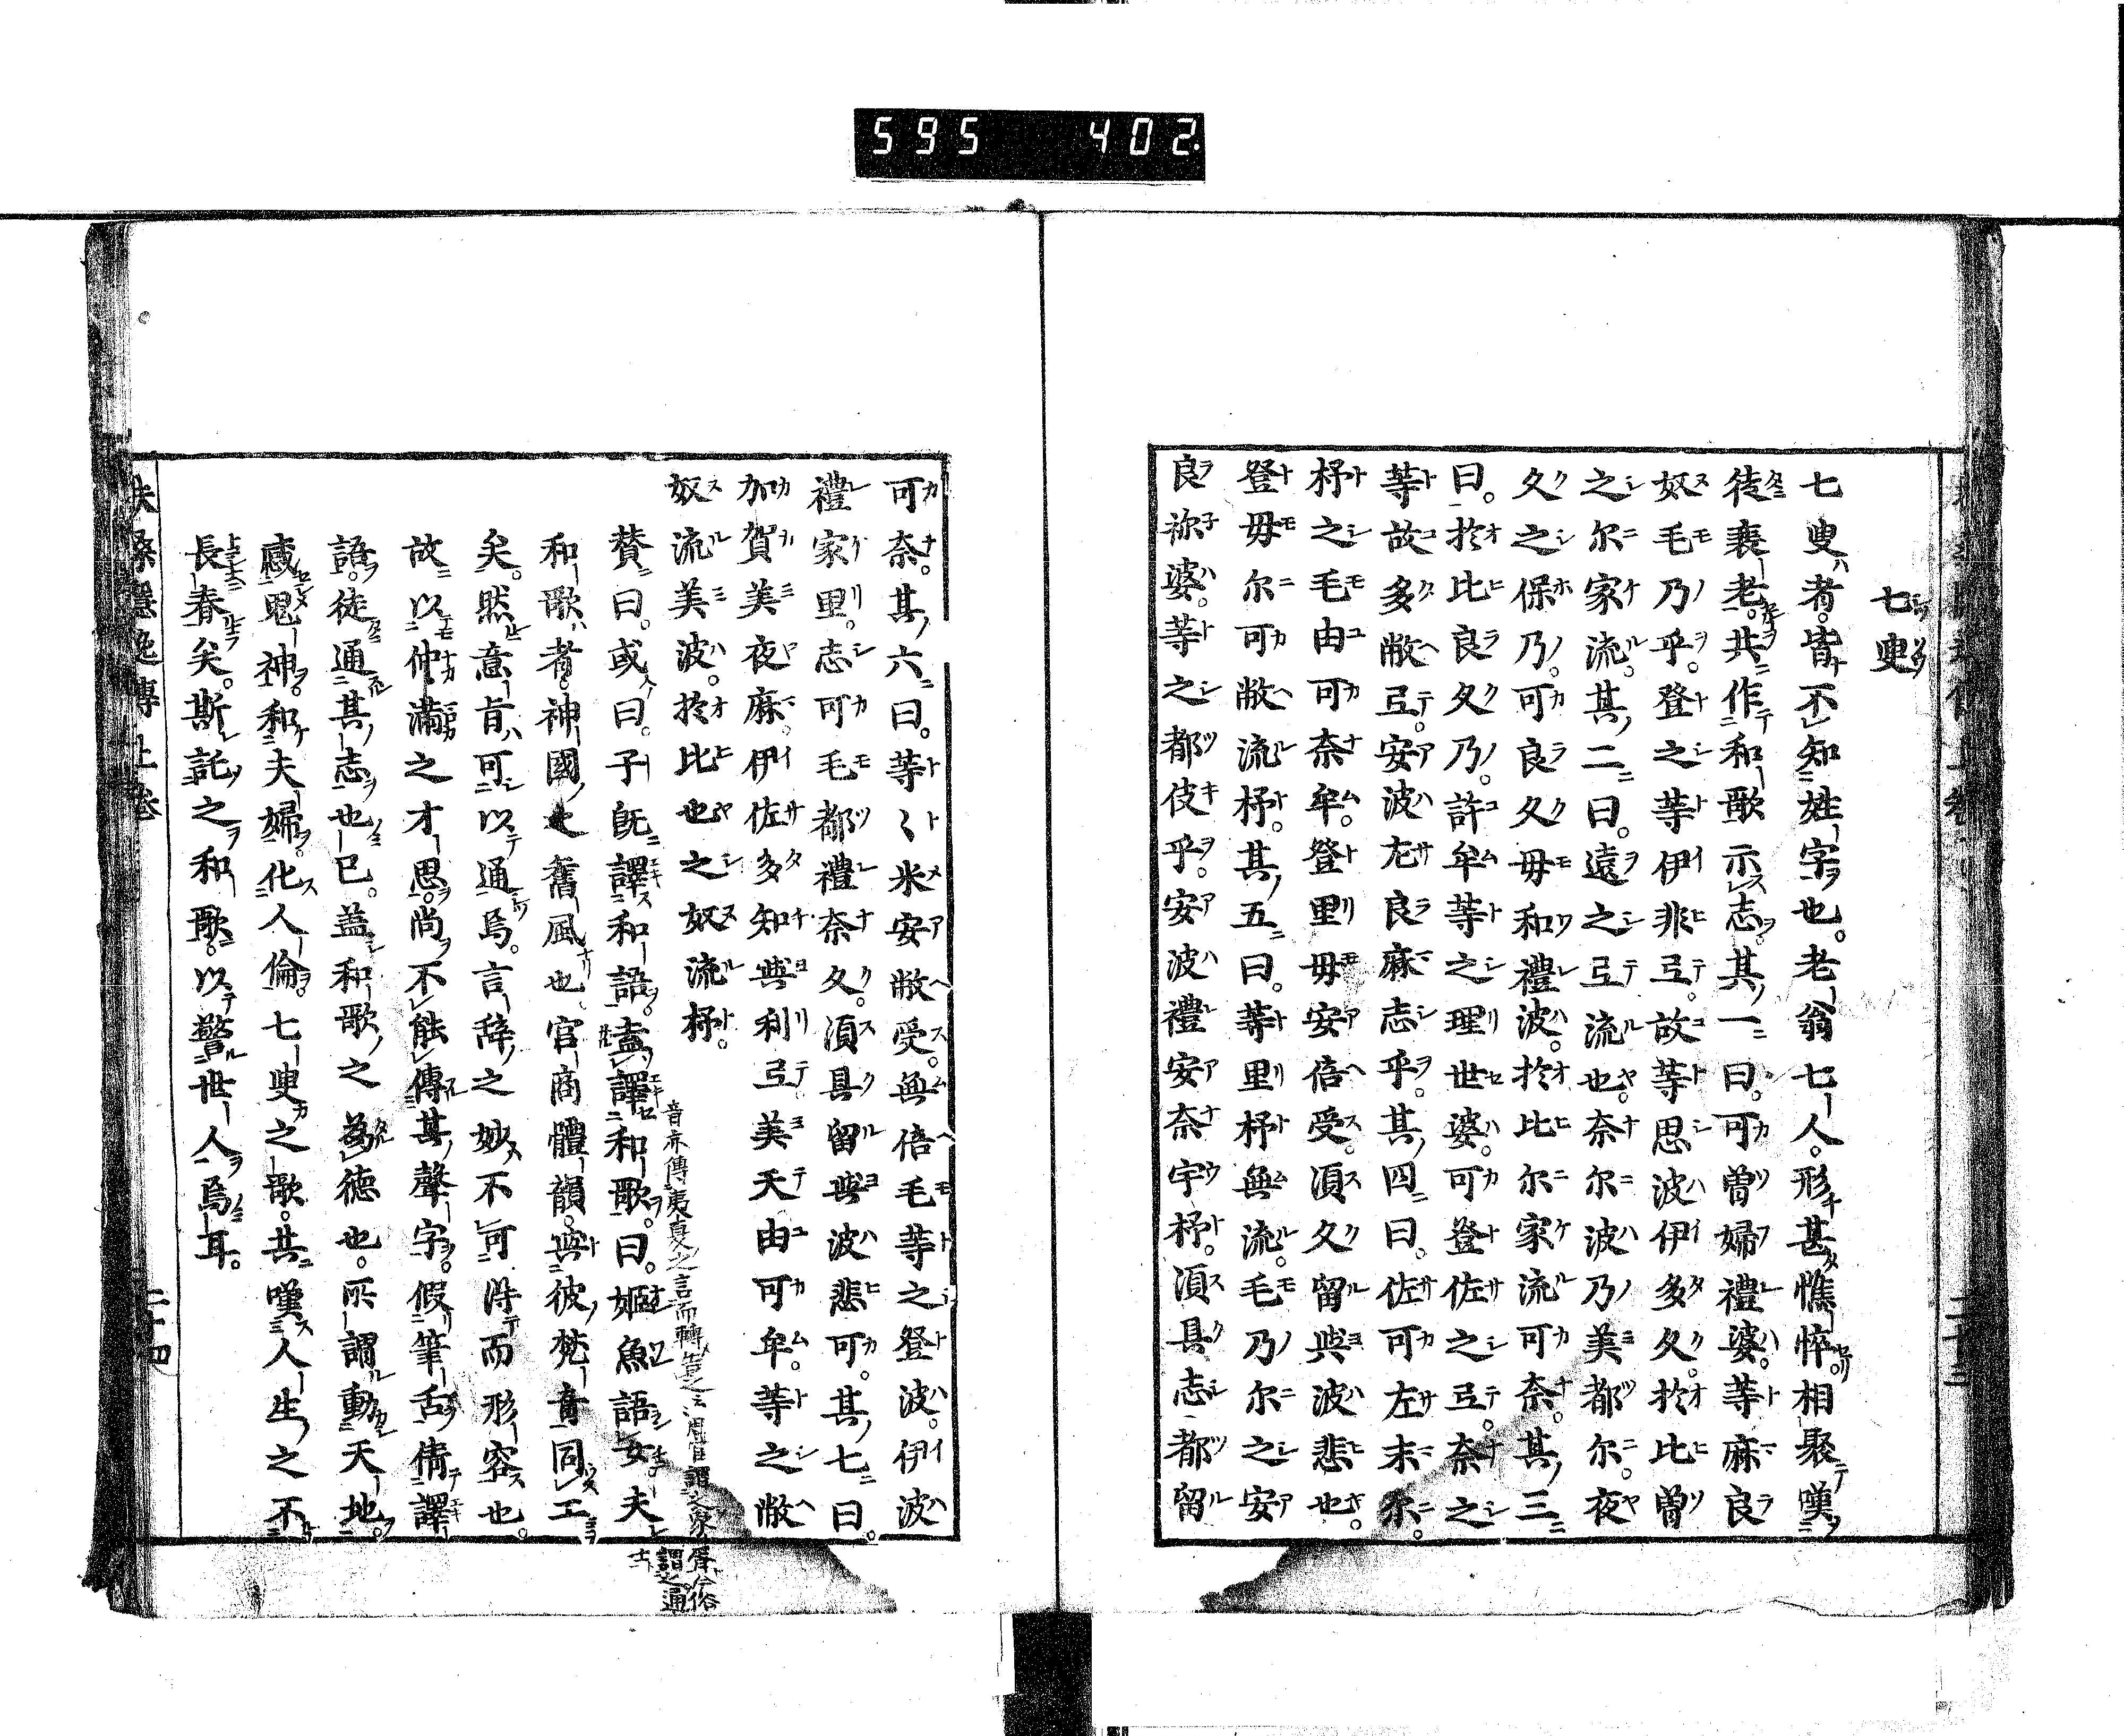 595 402.
七叟
七叟者。皆不知姓字也。老翁七人。形甚憔悴。相聚嘆
徒衰老。共作和歌示志。其一曰。可曽婦禮婆。等麻良
奴毛乃乎。登之等伊非弖。故等思波伊多久。於比曽
之尓家流。其二曰。遠之弖流也。奈尓波乃美都尓。夜
久之保乃。可良久毋和禮波。於比尓家流可奈。其三
曰。於比良久乃。許牟等之理世婆。可登佐之弖。奈之
等故多敝弖。安波尢良麻志乎。其四曰。佐可左末尓。
杼之毛由可奈牟。登里毋安倍受。湏久留與波悲也。
登毋尓可敝流杼。其五曰。等里杼無流。毛乃尓之安
良祢婆。等之都伎乎。安波禮安奈宇杼。湏具志都留
可奈。其六曰。等〻米安敝受。無倍毛等之登波。伊波
禮家里。志可毛都禮奈久。湏具留與波悲可。其七曰。
加賀美夜麻。伊佐多知與利弖。美天由可牟。等之敝
奴流美波。於比也之奴流杼。
賛曰。或曰。子既譯和語。盍譯和歌。曰。娵魚語女夫
和歌者。神國之舊風也。官商體韻。與彼梵音同工
矣。然意旨可以通焉。言辞之妙不可得而形容也。
故以仲滿之才思。尚不能傳其聲字。假筆舌倩譯
語。徒通其志也已。盖和歌之為德也。所謂動天地。
感鬼神。和夫婦。化人倫。七叟之歌。共嘆人生之不
長春矣。斯託之和歌。以警世人焉耳。
扶桑隱逸傳上卷
二十四